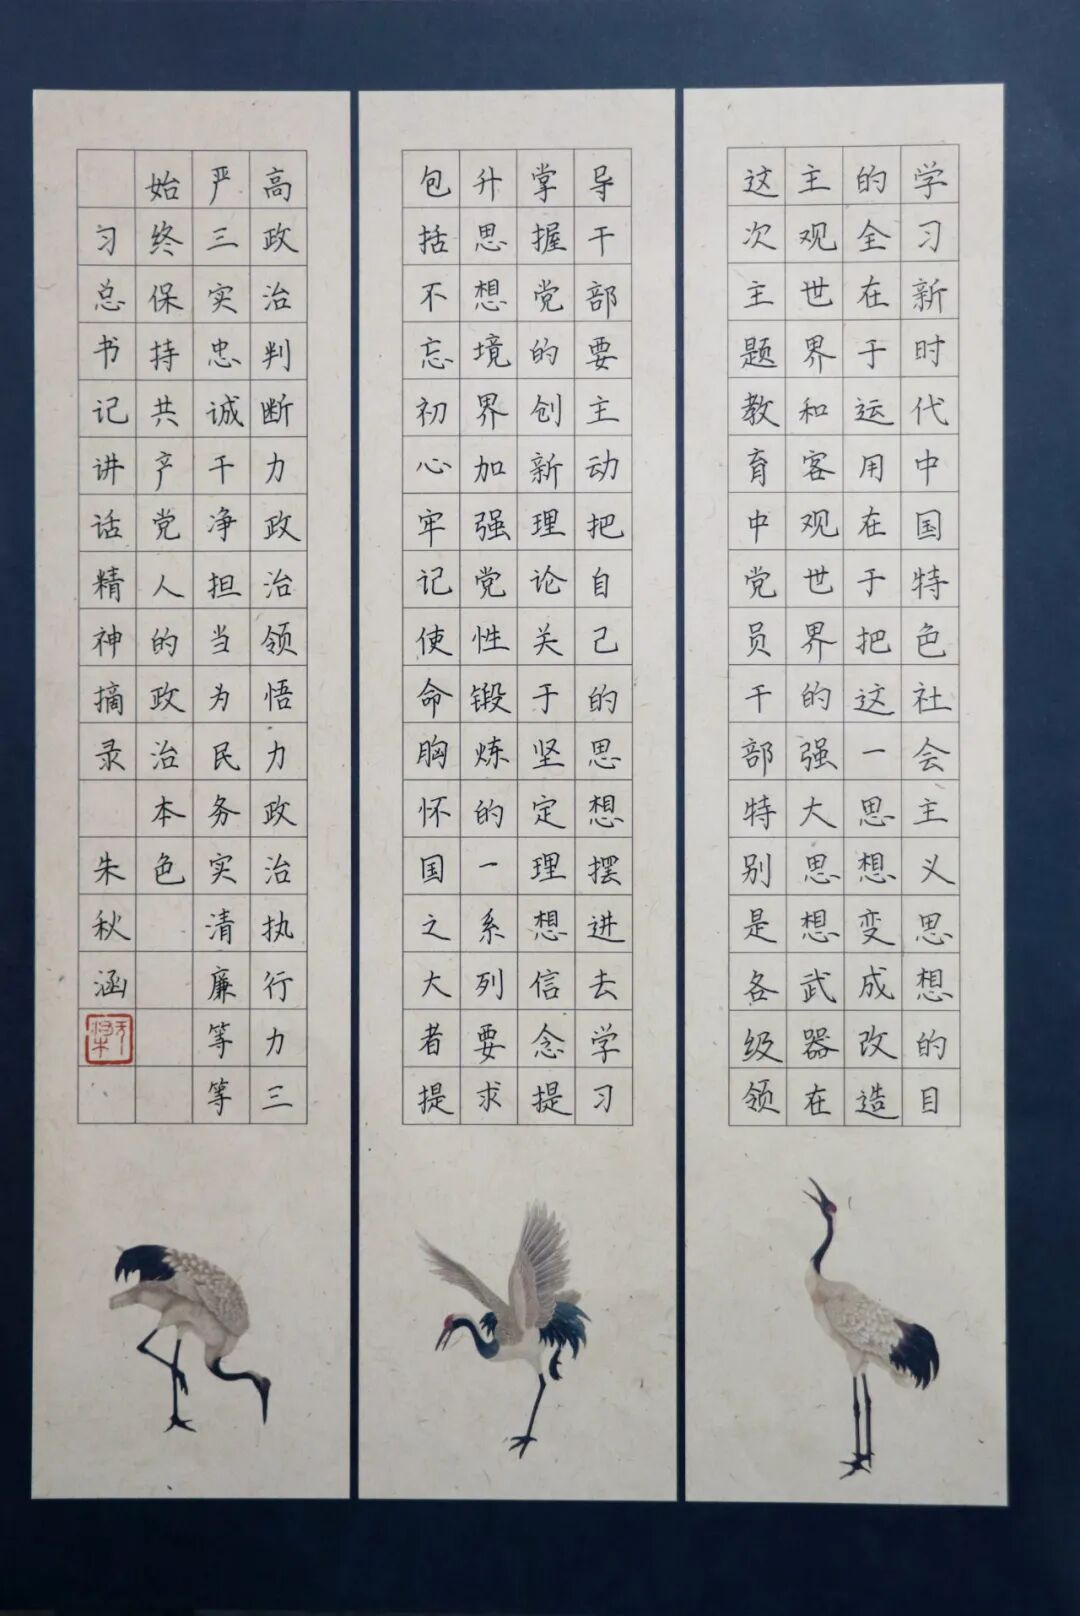 学习新时代中国特色社会主义思想的目
的全在于运用在于把这一思想变成改造
主观世界和客观世界的强大思想武器在
这次主题教育中党员干部特别是各级领
导干部要主动把自己的思想摆进去学习
掌握党的创新理论关于坚定理想信念提
升思想境界加强党性锻炼的一系列要求
包括不忘初心牢记使命胸怀国之大者提
高政治判断力政治领悟力政治执行力三
严三实忠诚干净担当为民务实清廉等等
始终保持共产党人的政治本色
习总书记讲话精神摘录 朱秋涵